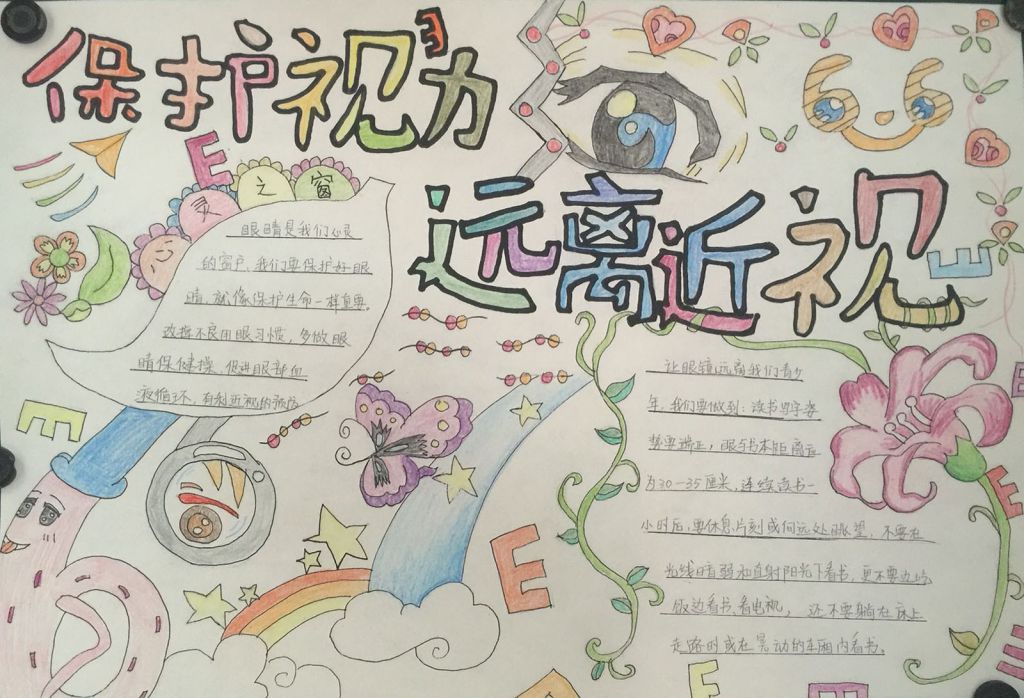 保护视力
远离近视
灵之窗
眼睛是我们心灵
的窗户,我们要保护好眼
睛,就像保护生命一样重要。
改掉不良用眼习惯,多做眼
睛保健操,促进眼部血
液循环,有利近视的预防
让眼镜远离我们青少
年,我们要做到:读书写字姿
势要端正,眼与书本距离应
为30-35厘米,连续读书一
小时后,要休息片刻或向远处眺望,不要在
光线暗弱和直射阳光下看书,更不要边
饭边看书,看电视,还不要躺在床上
走路时或在晃动的车厢内看书。
E
E
E
E
E
E
E